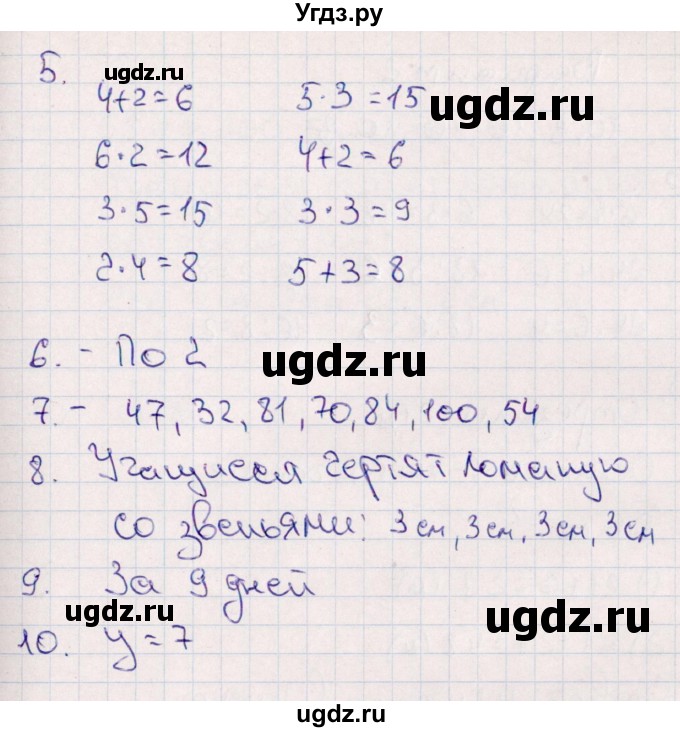 Угдз.ру
5. ugdz.ru
4+2=6 5·3=15
ugdz.ru
6·2=12 4+2=6
3·5=15 3·3=9
2·4=8 5+3=8
6. - По 2
ugdz.ru
7. - 47, 32, 81, 70, 84, 100, 54
8. Учащиеся чертят ломаную
со звеньями: 3 см, 3 см, 3 см, 3 см
9. За 9 дней
ugdz.ru ugdz.ru
10. y = 7
ugdz.ru